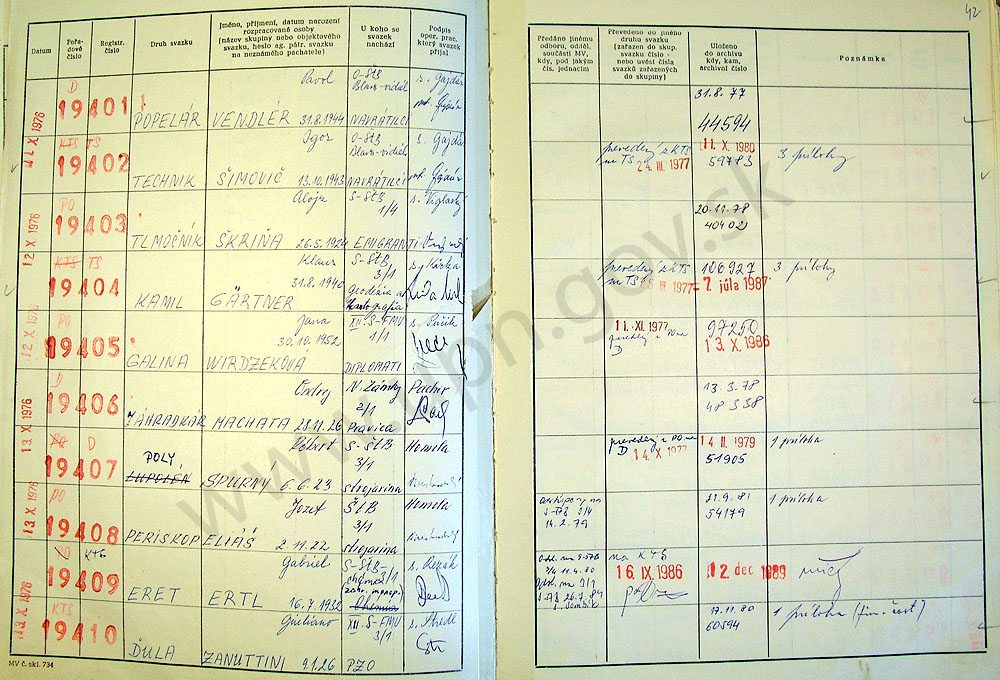 42
Datum
Pořa-
dové
číslo
Registr.
číslo
Druh svazku
Jméno, příjmení, datum narození
rozpracované osoby
(název skupiny nebo objektového
svazku, heslo ag. pátr. svazku
na neznámého pachatele)
U koho se
svazek
nachází
Podpis
oper. prac.
který svazek
přijal
Předáno jinému
odboru, odděl.
součásti MV,
kdy, pod jakým
čís. jednacím
Převedeno do jiného
druhu svazku
(zařazen do skup.
svazku číslo -
nebo uvést čísla
svazků zařazených
do skupiny)
Uloženo
do archivu
kdy, kam,
archivní číslo
Poznámka
11 X. 1976
D
19401
POPELÁR
Pavol
VENDLÉR 31.8.1944
NAVRÁTILCI
s. Gajdár
31.8.77
44594
KTS TS
19402
TECHNIK
Igor
ŠIMOVIČ 13.10.1943
NAVRÁTILCI
s. Gajdár
prevedený z KTS
na TS 24. III. 1977
11. X. 1980
59783
3 prílohy
12 X. 1976
PO
19403
TLMOČNÍK
Alojz
ŠKRIŇA 26.5.1924
S-ŠTB
1/4
EMIGRANTI
20.11.78
40402
KTS TS
19404
KAMIL
Klaus
GÄRTNER 31.8.1940
S-ŠTB
3/1
Geodézia a
kartografia
prevedený z KTS
na TS
III. 1977
106927
- 7. júla 1987
3 prílohy
12 X. 1976
PO
19405
GALINA
Jana
30.10.1952
WIRDZEKOVÁ
XII. S-FMV
1/1
DIPLOMATI
11. XI. 1977
97250
13. X. 1986
D
19406
ZÁHRADKÁR
Ondrej
MACHATA 28.11.26
N. Zámky
2/1
Pravica
Pacher
13.3.78
48338
13 X. 1976
D
19407
POLY
LUPOLEN
Róbert
SPURNÝ 6.6.23
S-ŠTB
3/1
strojárina
Homola
14. X. 1977
14 II. 1979
51905
1 príloha
13 X. 1976
PO
19408
PERISKOP
Jozef
ELIÁŠ 2.11.22
ŠTB
3/1
strojárina
Homola
14.2.79
21.9.81
54179
1 príloha
KTS
19409
ERET
Gabriel
ERTL 16.7.1932
S-ŠTB
s. Rezák
na KTS
16. IX. 1986
12. dec 1989
13 X. 1976
KTS
19410
ĎULA
Giuliano
ZANUTTINI 9.1.26
XII. S-FMV
3/1
PZO
17.11.80
60594
1 príloha (fin. časť)
MV č. skl. 734
www.upn.gov.sk